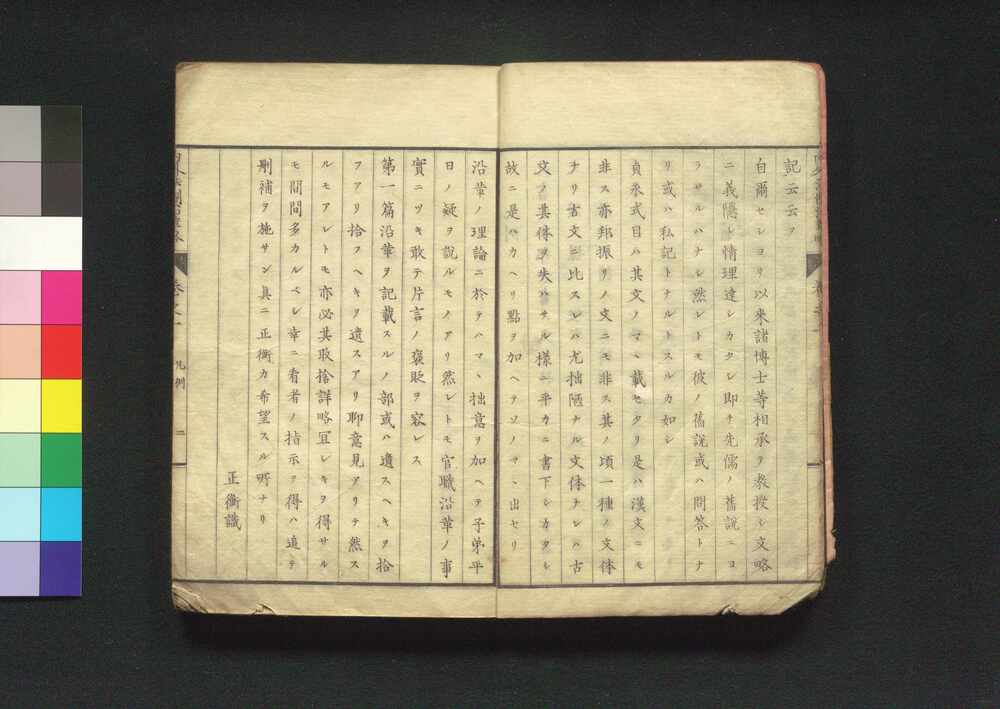 記云云ヲ
自爾セシヨリ以来諸博士等相承ヲ教授シ文略
ニ義隠レ情理達シカタシ即チ先儒ノ舊説ニヨ
ラサルハナシ然レトモ彼ノ舊説或ハ問答トナ
リ或ハ私記トナルトスルカ如シ
貞永式目ハ其文ノマヽ載セタリ是ハ漢文ニモ
非ス亦邦振リノ文ニモ非ス其ノ頃一種ノ文体
ナリ古文ニ比スレハ尤拙陋ナル文体ナレハ古
文ノ其体ヲ失ハサル様ニ平カニ書下シカタシ
故ニ是ハカヘリ點ヲ加ヘテソノマヽ出セリ
沿革ノ理論ニ於テハマヽ拙意ヲ加ヘテ子弟平
日ノ疑ヲ説ルモノアリ然レトモ官職沿革ノ事
實ニツキ敢テ片言ノ褒貶ヲ容レス
第一篇沿革ヲ記載スルノ部或ハ遺スヘキヲ拾
フアリ拾フヘキヲ遺スアリ聊意見アリテ然ス
ルモアレトモ亦必其取捨詳略宜シキヲ得サル
モ間間多カルベシ幸ニ看者ノ指示ヲ得ハ追テ
刪補ヲ施サン真ニ正衡カ希望スル所ナリ
正衡識
凡例
二